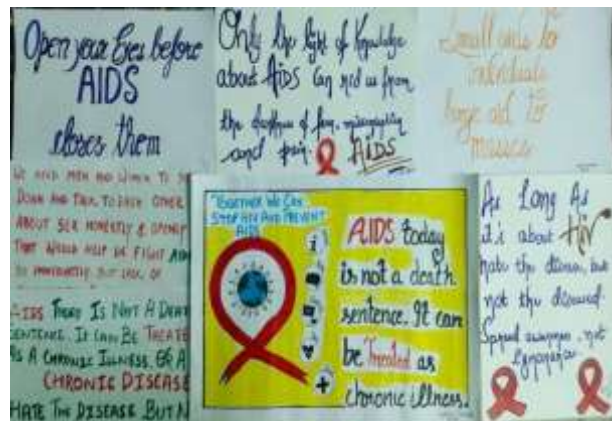 Open your Eyes before
AIDS
closes them
Only the light of Knowledge
about AIDS Can rid us from
the darkness of fear,
and pain. AIDS
Small aids to
individuals
huge aid to
masses
WE NEED MEN AND WOMEN TO
DOWN AND TALK TO EACH OTHER
ABOUT SEX HONESTLY & OPENLY
THAT WOULD HELP US FIGHT AIDS
SO IMMENSELY. BUT LACK OF
AIDS THERE IS NOT A DEAT
SENTENCE. IT CAN BE TREATE
AS A CHRONIC ILLNESS, OR A
CHRONIC DISEASE
HATE THE DISEASE BUT N
TOGETHER WE CAN
STOP HIV AND PREVENT
AIDS
AIDS today
is not a death
sentence. It can
be Treated as
chronic illness.
As Long As
it's about HIV
hate the disease, but
not the diseased
Spread awareness, not